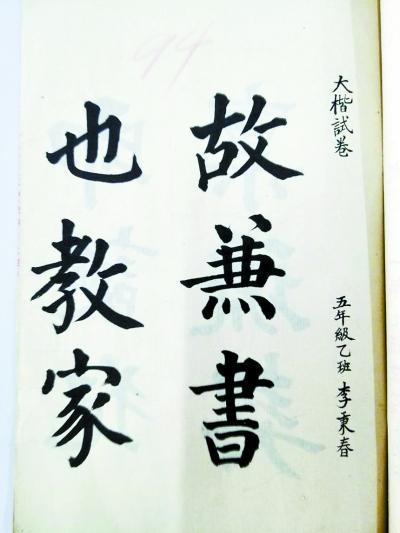 大楷試卷
五年級乙班 李秉春
故兼書
也教家
94